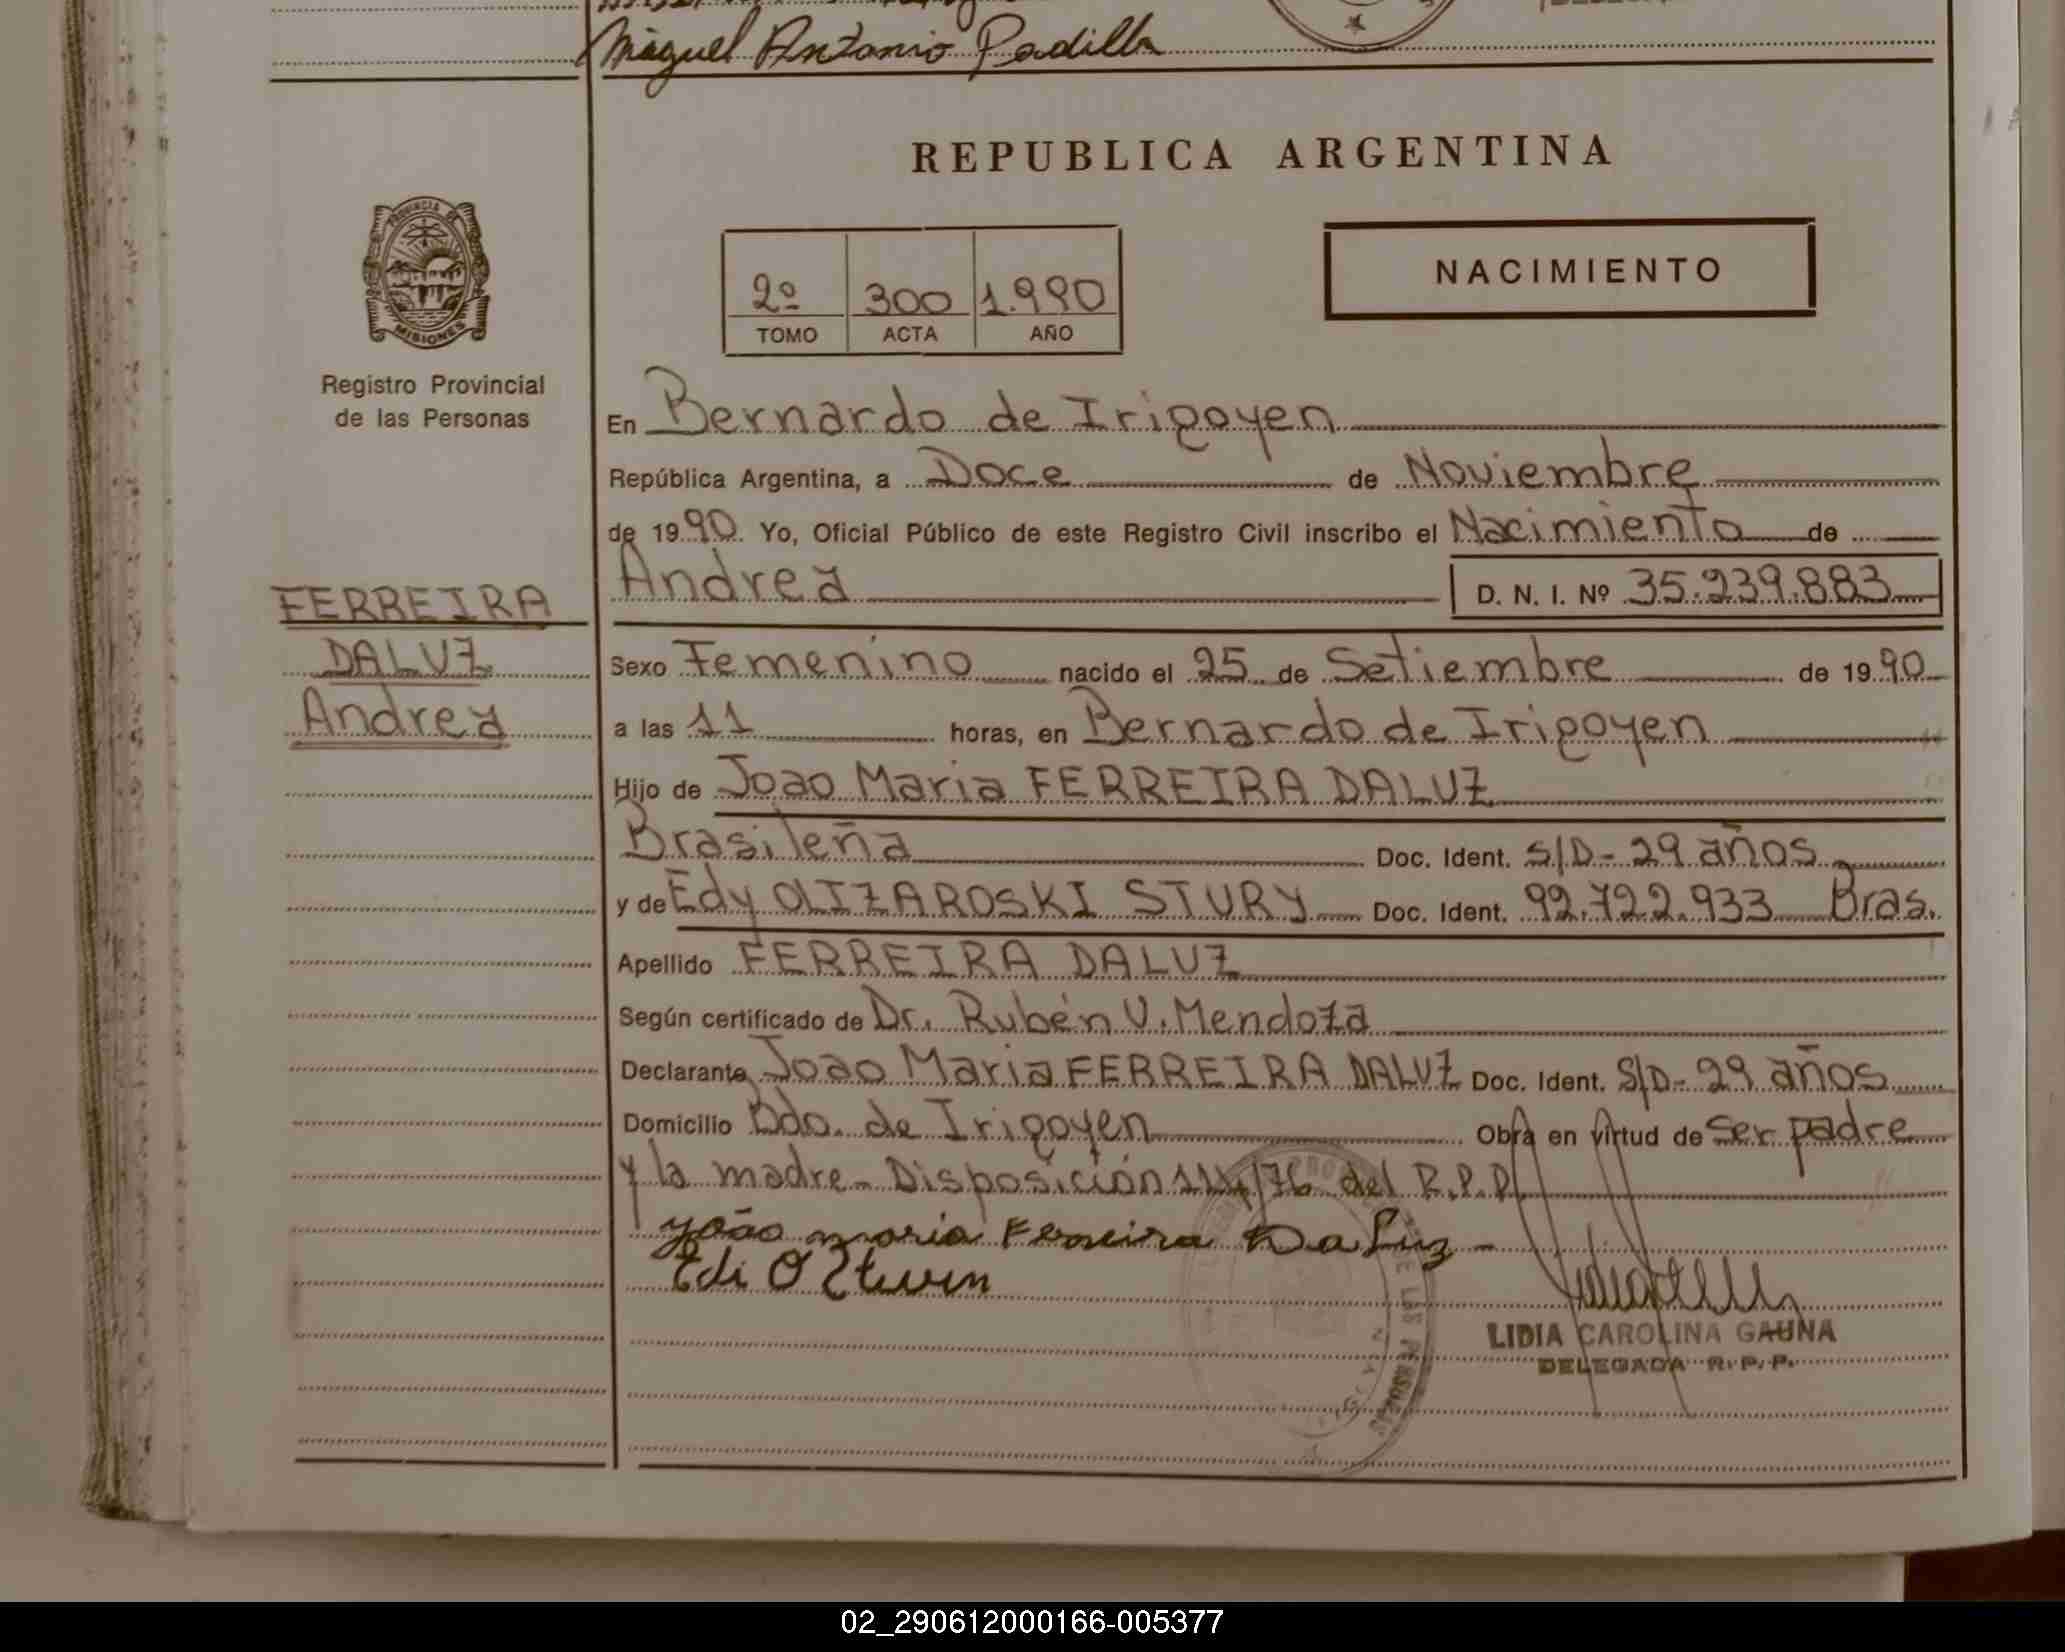 Miguel Antonio Padilla
REPUBLICA ARGENTINA
PROVINCIA DE MISIONES
Registro Provincial
de las Personas
2º 300 1.990
TOMO ACTA AÑO
NACIMIENTO
En Bernardo de Irigoyen
República Argentina, a Doce de Noviembre
de 1990 Yo, Oficial Público de este Registro Civil inscribo el Nacimiento de
Andrea D. N. I. Nº 35.239.883
FERREIRA
DALUZ
Andrea
Sexo Femenino nacido el 25 de Setiembre de 1990
a las 11 horas, en Bernardo de Irigoyen
Hijo de Joao Maria FERREIRA DALUZ
Brasileña Doc. Ident. S/D- 29 años
y de Edy OLIZAROSKI STURY Doc. Ident. 92.722.933 Bras.
Apellido FERREIRA DALUZ
Según certificado de Dr. Rubén V. Mendoza
Declarante Joao Maria FERREIRA DALUZ Doc. Ident. S/D- 29 años
Domicilio Bdo. de Irigoyen Obra en virtud de ser padre
y la madre- Disposición 114/76 del R.P.P.
João maria Ferreira Da Luz -
Edi O
LIDIA CAROLINA GAUNA
DELEGADA R. P. P.
02_290612000166-005377